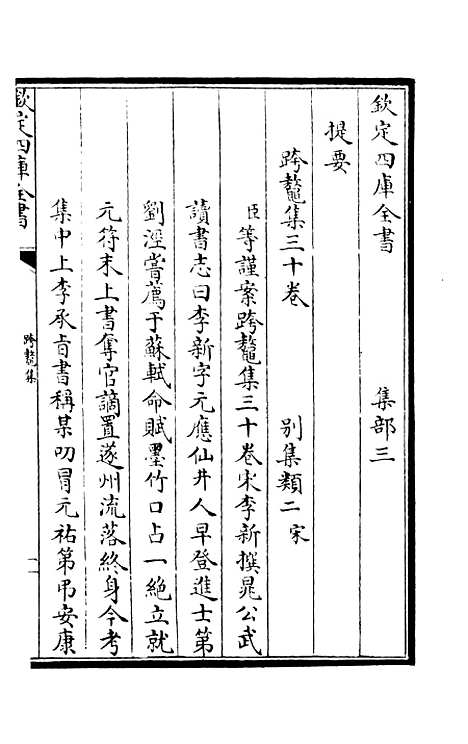 欽定四庫全書　集部三
提要
跨鼇集三十卷　別集類二宋
臣等謹案跨鼇集三十卷宋李新撰晁公武
讀書志曰李新字元應仙井人早登進士第
劉涇嘗薦于蘇軾命賦墨竹口占一絶立就
元符末上書奪官謫置遂州流落終身今考
集中上李承㫖書稱某叨冒元祐第弔安康
欽定四庫全書
跨鼇集
一